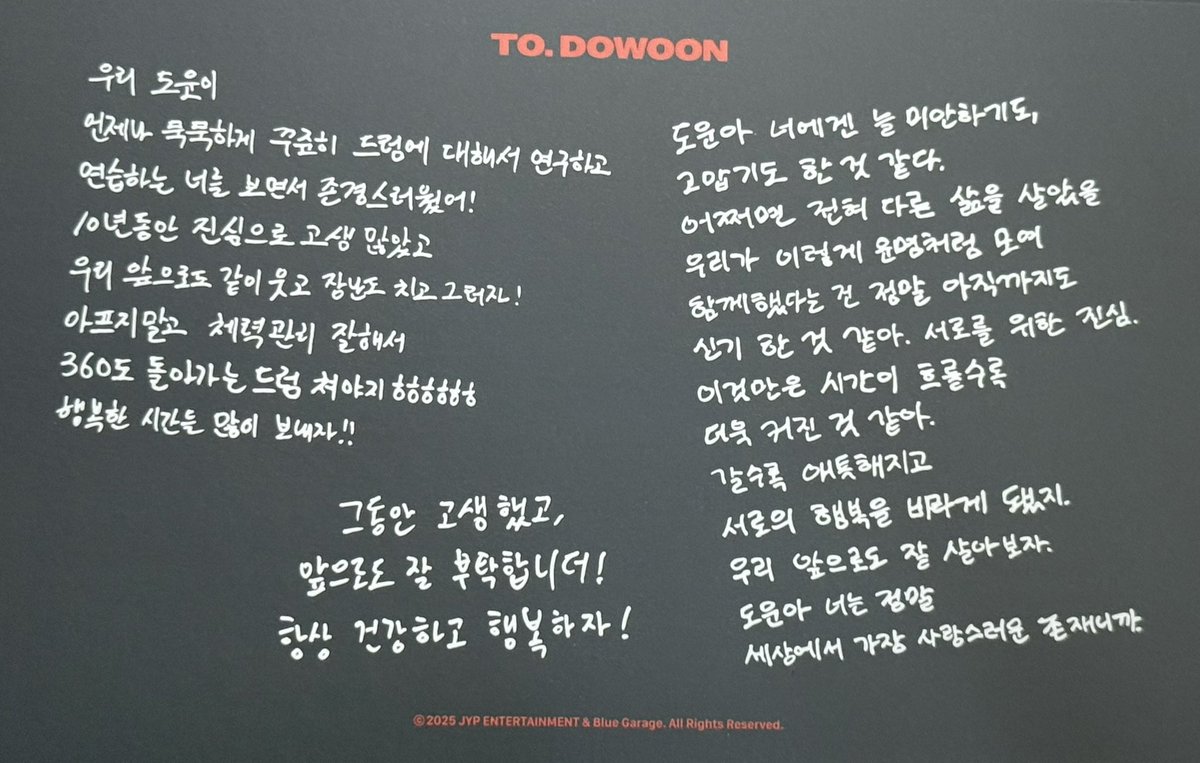 TO. DOWOON
우리 도운이
언제나 묵묵하게 꾸준히 드럼에 대해서 연구하고
연습하는 너를 보면서 존경스러웠어!
10년동안 진심으로 고생 많았고
우리 앞으로도 같이 웃고 장난도 치고 그러자!
아프지말고 체력관리 잘해서
360도 돌아가는 드럼 쳐야지 ㅎㅎㅎㅎㅎ
행복한 시간들 많이 보내자!!
그동안 고생했고,
앞으로도 잘 부탁합니더!
항상 건강하고 행복하자!
도운아 너에겐 늘 미안하기도,
고맙기도 한 것 같다.
어쩌면 전혀 다른 삶을 살았을
우리가 이렇게 운명처럼 모여
함께했다는 건 정말 아직까지도
신기 한 것 같아. 서로를 위한 진심.
이것만은 시간이 흐를수록
더욱 커진 것 같아.
갈수록 애틋해지고
서로의 행복을 바라게 됐지.
우리 앞으로도 잘 살아보자.
도운아 너는 정말
세상에서 가장 사랑스러운 존재니까.
©2025 JYP ENTERTAINMENT & Blue Garage. All Rights Reserved.